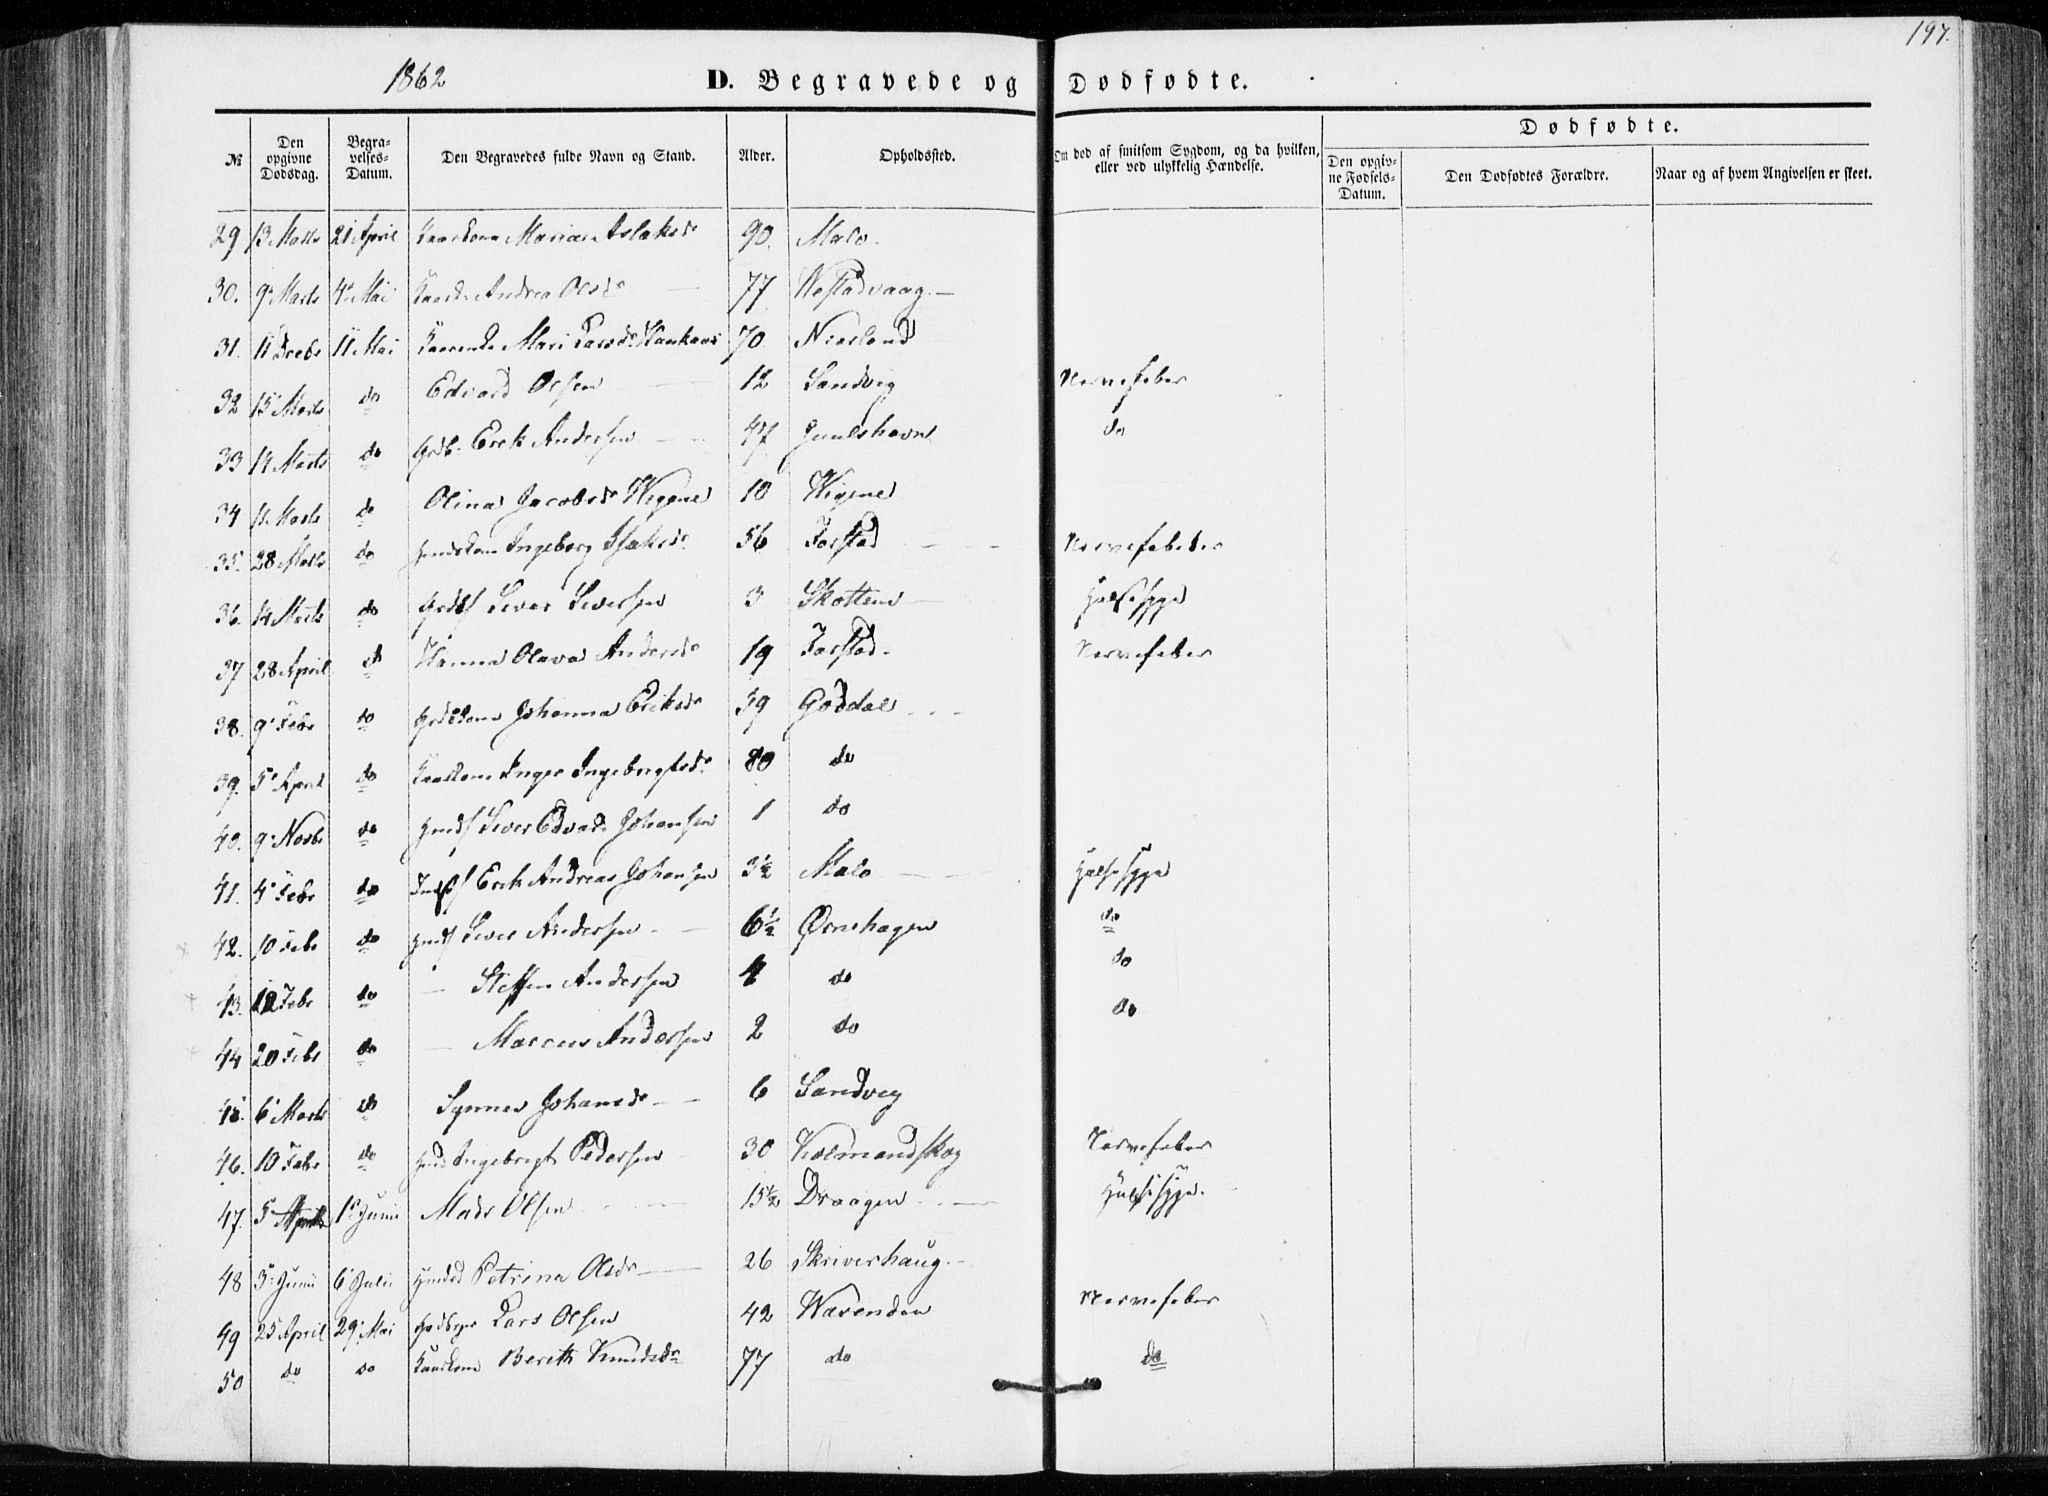 197.
1862
D. Begravede og Dødfødte.
№ Den opgivne Dødsdag. Begravelses-Datum. Den Begravedes fulde Navn og Stand. Alder. Opholdssted. Om død af smitsom Sygdom, og da hvilken, eller ved ulykkelig Hændelse. Dødfødte.
Den opgivne Fødsels-Datum. Den Dødfødtes Forældre. Naar og af hvem Angivelsen er skeet.
29 13 Marts 21 April Maria Aslaksdr 90. Malo
30. 9 Marts 4 Mai Andrea Olsdr 77
31. 11 Mai Mari Larsdr 70 Nierland
32 15 Marts do Edvard Olsen 12 Sandvig Nervefeber
33 14 Marts do Erek Andersen 47 Juulshavn do
34 11 Marts do Olina Jacobsdr Wigene 10 Wigene
35. 28 Marts do Ingeborg Isaksdr 56 Farstad Nervefeber
36. 14 Marts do Sever Seversen 3 Skotten Halssyge
37 28 April do Hanna Olava Andersdr 19 Farstad Nervefeber
38. 9 Febr do Johanna Eriksdr 39 Goddal
39. 5 April do Inger Ingebrigtsdr 80 do
40. 9 do Sever Edvard Johansen 1 do
41. 4 Febr do Erik Andreas Johansen 3½ Malo Halssyge
42. 10 Febr do Sever Andersen 6½ Ørnehagen do
43. 12 Febr do — Steffen Andersen 4 do do
44 20 Febr do — Marcus Andersen 2 do do
45. 6 Marts do Synnev Johansdr 6 Sandvig
46. 10 Febr do Ingebrigt Pedersen 30 Kolmandskog Nervefeber
47. 5 1 Juni Mads Olsen 15½ Draagen Halssyge.
48 3 Juni 6 Juli Petrina Olsdr 26 Skriverhaug
49 25 April 29 Mai Lars Olsen 42 Warenden Nervefeber
50 do do Bereth Knudsdr 77 do do